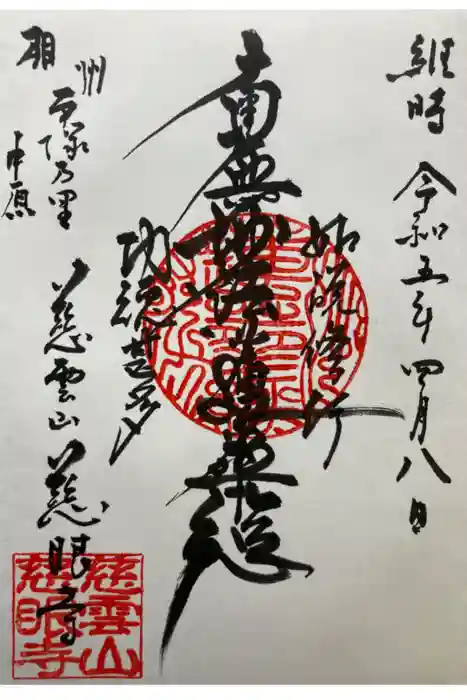 維時 令和五年四月八日
如説修行
南無妙法蓮華経
功徳甚多
相州
平塚乃里
中原
慈雲山 慈眼寺
慈雲山
慈眼寺